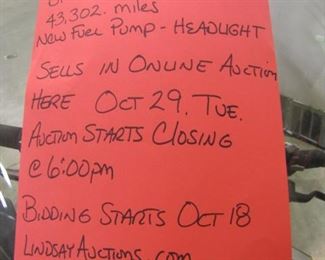 43,302. miles
New Fuel Pump - Headlight
Sells in Online Auction
Here Oct 29. Tue.
Auction Starts Closing
@ 6:00pm
Bidding Starts Oct 18
LindsayAuctions.com